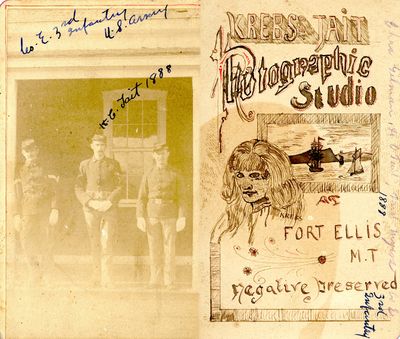 Co. E. 3rd
infantry
U.S. Army
H.C. Tait 1888
KREBS & TAIT
Photographic
Studio
KREBS
AT
1888
FORT ELLIS
M.T
Negative Preserved
3rd
infantry